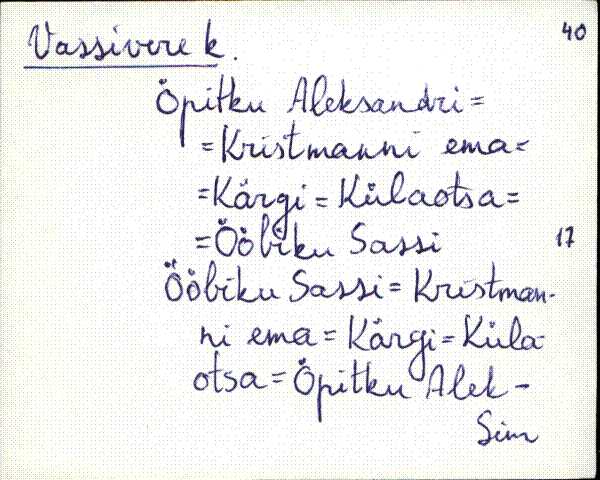 Vassivere k.
40
Öpitku Aleksandri=
=Kristmanni ema=
=Kärgi=Külaotsa=
=Ööbiku Sassi 17
Ööbiku Sassi=Kristman-
ni ema=Kärgi=Küla-
otsa=Öpitku Alek-
Sim